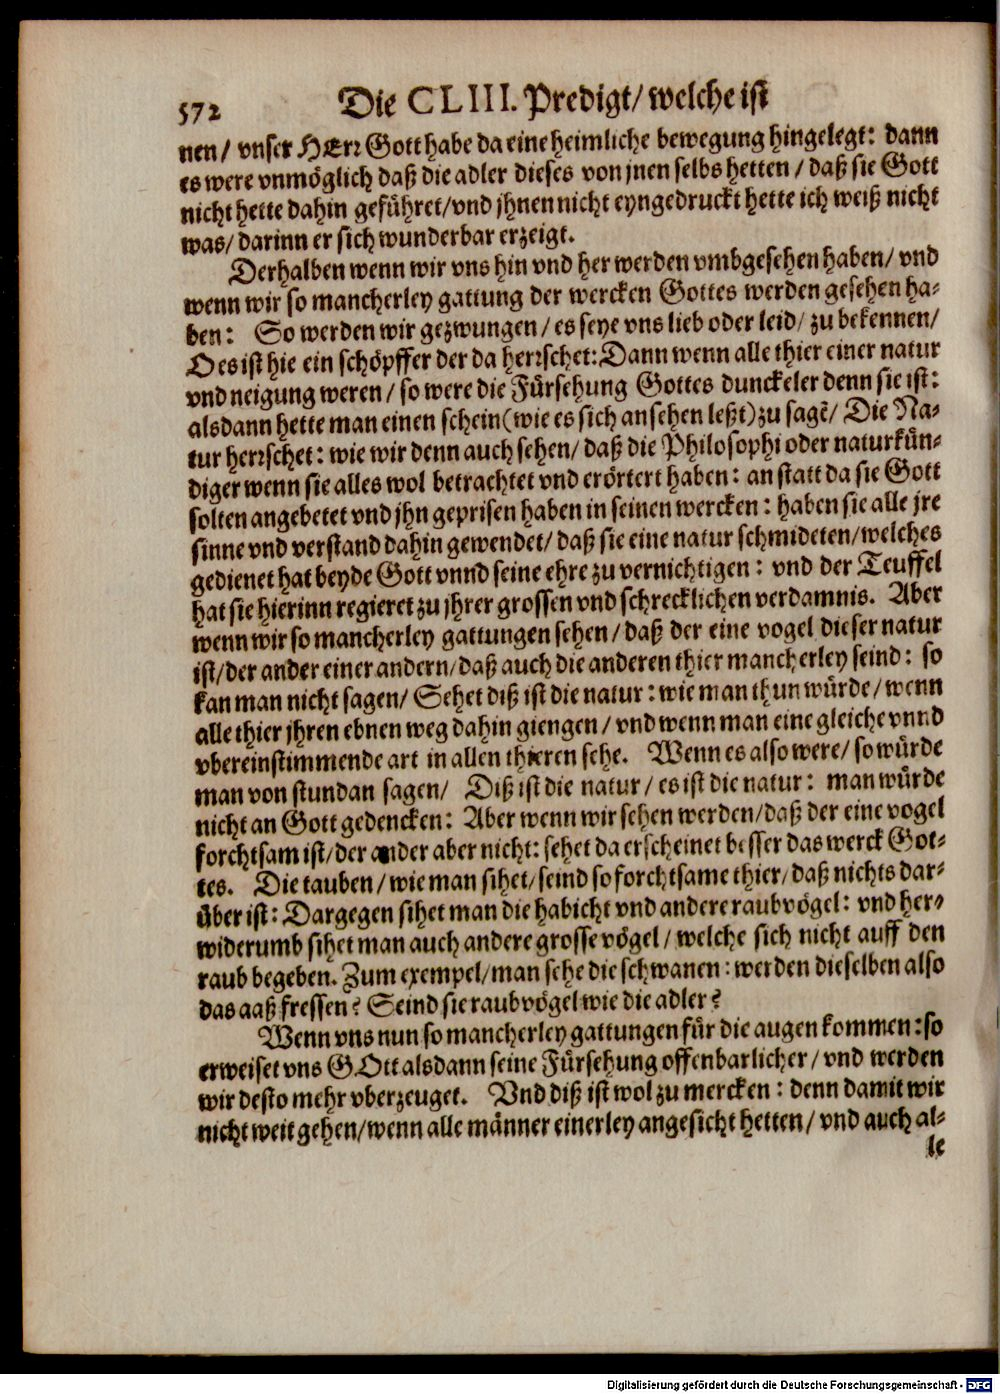 572 Die CLIII. Predigt/ welche ist
nen/ vnser HErr Gott habe da eine heimliche bewegung hingelegt: dann
es were vnmöglich daß die adler dieses von jnen selbs hetten/ daß sie Gott
nicht hette dahin geführet/vnd jhnen nicht eyngedruckt hette ich weiß nicht
was/ darinn er sich wunderbar erzeigt.
Derhalben wenn wir vns hin vnd her werden vmbgesehen haben/ vnd
wenn wir so mancherley gattung der wercken Gottes werden gesehen ha-
ben: So werden wir gezwungen/ es seye vns lieb oder leid/ zu bekennen/
O es ist hie ein schöpffer der da herrschet: Dann wenn alle thier einer natur
vnd neigung weren/ so were die Fürsehung Gottes dunckeler denn sie ist:
alsdann hette man einen schein (wie es sich ansehen leßt) zu sagẽ/ Die Na-
tur herrschet: wie wir denn auch sehen/ daß die Philosophi oder naturkün-
diger wenn sie alles wol betrachtet vnd erörtert haben: an statt da sie Gott
solten angebetet vnd jhn geprisen haben in seinen wercken: haben sie alle jre
sinne vnd verstand dahin gewendet/ daß sie eine natur schmideten/welches
gedienet hat beyde Gott vnnd seine ehre zu vernichtigen: vnd der Teuffel
hat sie hierinn regieret zu jhrer grossen vnd schrecklichen verdamnis. Aber
wenn wir so mancherley gattungen sehen/ daß der eine vogel dieser natur
ist/der ander einer andern/daß auch die anderen thier mancherley seind: so
kan man nicht sagen/ Sehet diß ist die natur: wie man thun würde/ wenn
alle thier jhren ebnen weg dahin giengen/ vnd wenn man eine gleiche vnnd
vbereinstimmende art in allen thieren sehe. Wenn es also were/ so würde
man von stundan sagen/ Diß ist die natur/ es ist die natur: man würde
nicht an Gott gedencken: Aber wenn wir sehen werden/daß der eine vogel
forchtsam ist/der ander aber nicht: sehet da erscheinet besser das werck Got-
tes. Die tauben/ wie man sihet/ seind so forchtsame thier/ daß nichts dar-
über ist: Dargegen sihet man die habicht vnd andere raubvögel: vnd her-
widerumb sihet man auch andere grosse vögel/ welche sich nicht auff den
raub begeben. Zum exempel/man sehe die schwanen: werden dieselben also
das aaß fressen? Seind sie raubvögel wie die adler?
Wenn vns nun so mancherley gattungen für die augen kommen: so
erweiset vns GOtt alsdann seine Fürsehung offenbarlicher/ vnd werden
wir desto mehr vberzeuget. Vnd diß ist wol zu mercken: denn damit wir
nicht weit gehen/wenn alle männer einerley angesicht hetten/ vnd auch al-
le
Digitalisierung gefördert durch die Deutsche Forschungsgemeinschaft - DFG